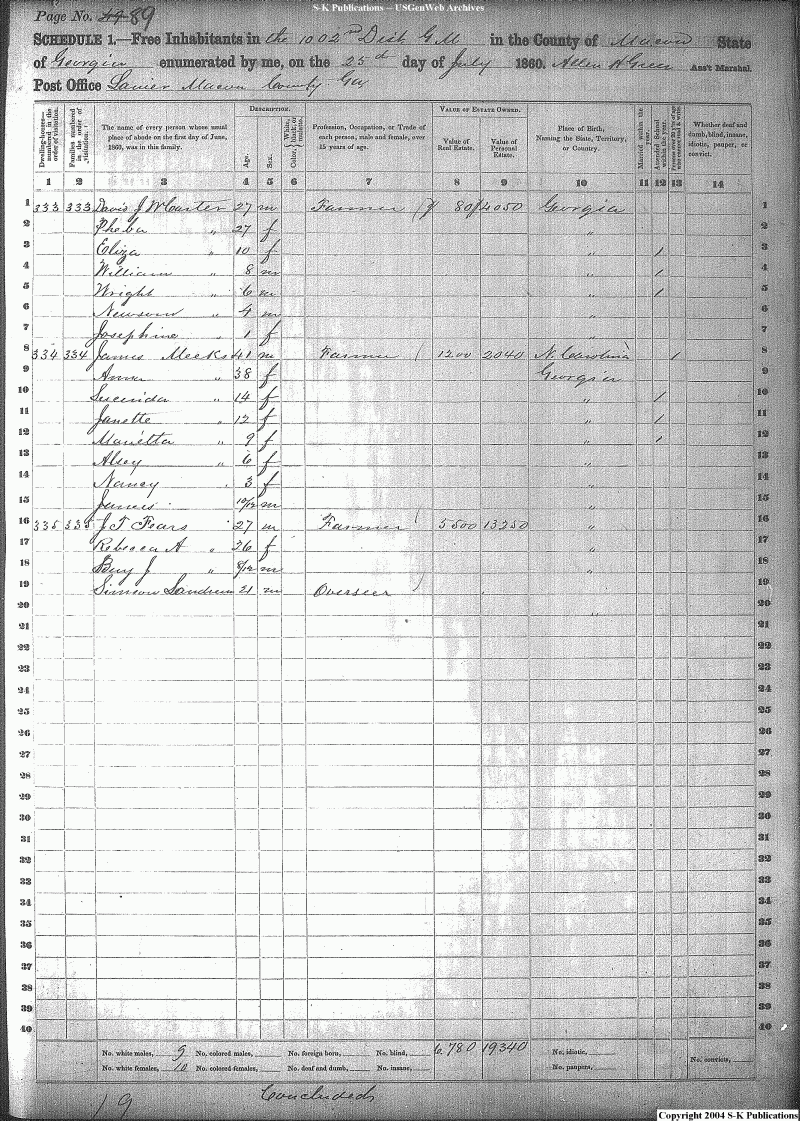 S-K Publications -- USGenWeb Archives
Page No. 89
SCHEDULE 1.—Free Inhabitants in the 1002nd Dist G M in the County of Macon State
of Georgia enumerated by me, on the 25th day of July 1860. Allen H Green Ass't Marshal.
Post Office Lanier Macon County Ga
Dwelling-houses—numbered in the order of visitation.
Families numbered in the order of visitation.
The name of every person whose usual place of abode on the first day of June, 1860, was in this family.
DESCRIPTION.
Age.
Sex.
Color, White, black, or mulatto.
Profession, Occupation, or Trade of each person, male and female, over 15 years of age.
VALUE OF ESTATE OWNED.
Value of Real Estate.
Value of Personal Estate.
Place of Birth, Naming the State, Territory, or Country.
Married within the year.
Attended School within the year.
Whether deaf and dumb, blind, insane, idiotic, pauper, or convict.
1 2 3 4 5 6 7 8 9 10 11 12 13 14
1 333 333 Davis J McCarter 27 m Farmer 80 4050 Georgia 1
2 Pheba " 27 f " 2
3 Eliza " 10 f / 3
4 William " 8 m " / 4
5 Wright " 6 m " / 5
6 Newsom " 4 m " 6
7 Josephine " 1 f 7
8 334 334 James Meeks 41 m Farmer 1200 2040 N. Carolina / 8
9 Anna " 38 f Georgia 9
10 Lucinda " 14 f " / 10
11 Janette " 12 f " / 11
12 Marietta " 9 f " / 12
13 Alsey " 6 f " 13
14 Nancy " 3 f " 14
15 James 10/12 m " 15
16 335 335 J T Fears 27 m Farmer 5500 13250 " 16
17 Rebecca A " 26 f " 17
18 Benj J " 8/12 m " 18
19 Simeon Landrum 21 m Overseer 19
20 " 20
21 21
22 22
23 23
24 24
25 25
26 26
27 27
28 28
29 29
30 30
31 31
32 32
33 33
34 34
35 35
36 36
37 37
38 38
39 39
40 40
No. white males, 9 No. colored males, No. foreign born, No. blind, 6.780 19340 No. idiotic,
No. white females, 10 No. colored females, No. deaf and dumb, No. insane, No. paupers, No. convicts,
19 Concluded
Copyright 2004 S-K Publications